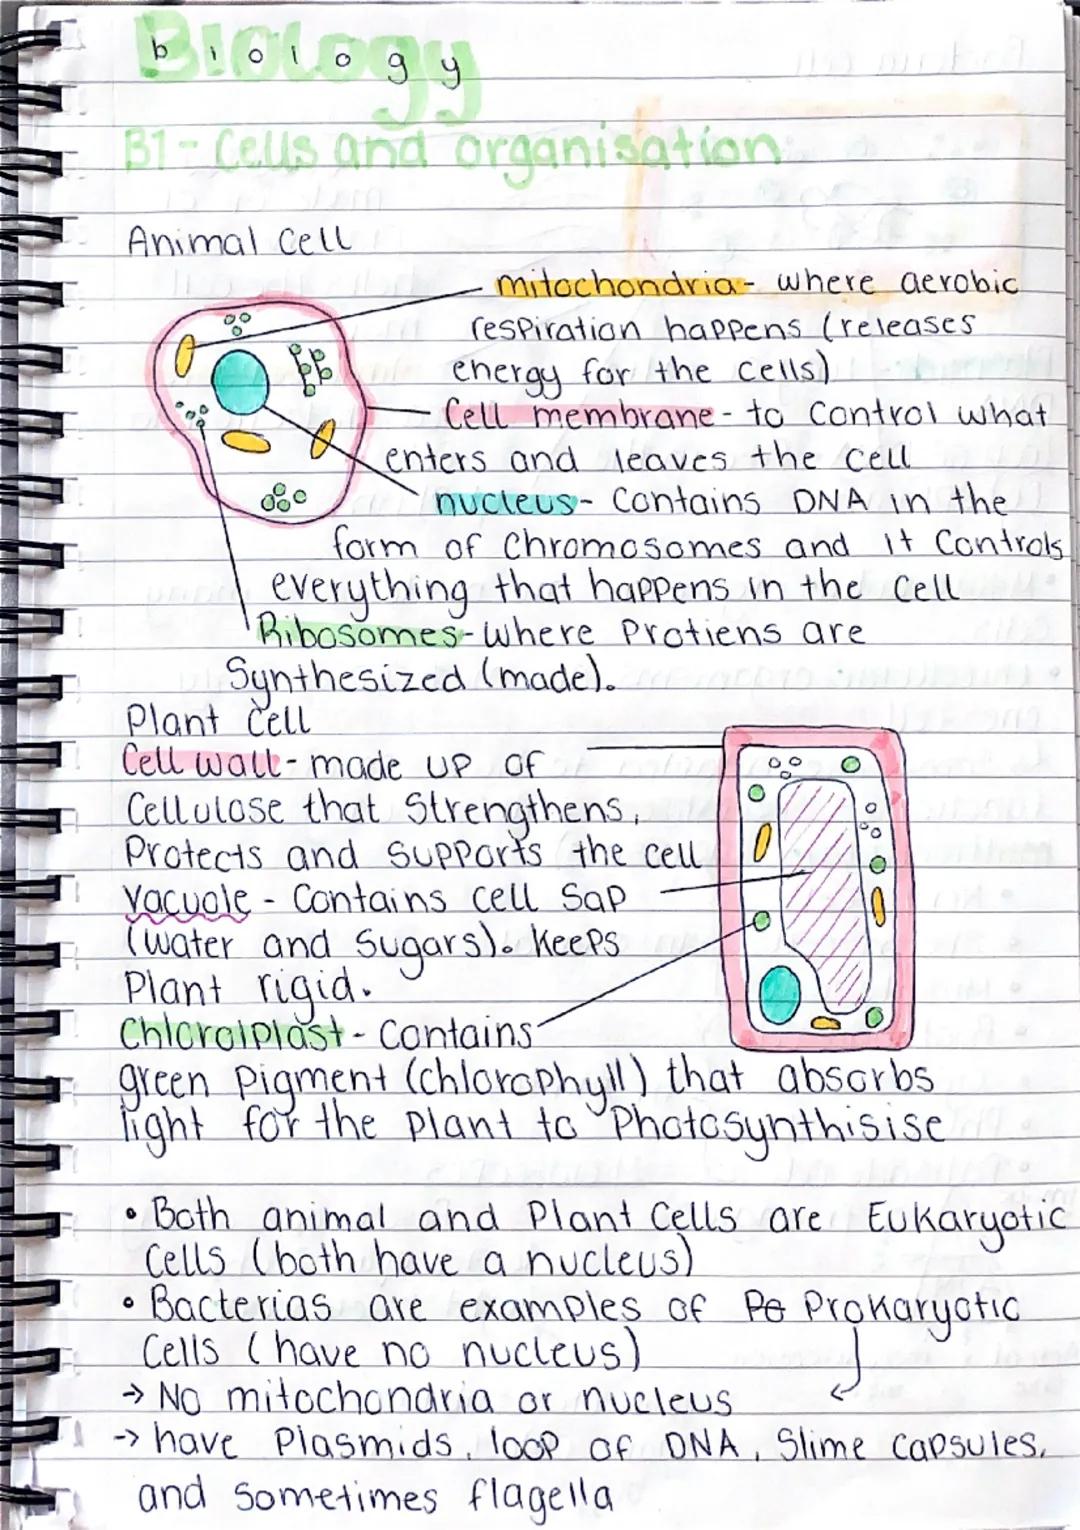 Biology
B1 - Cells and organisation
Animal Cell
mitochondria - where aerobic
respiration happens (releases
energy for the cells)
Cell membrane - to control what
enters and leaves the cell
nucleus - Contains DNA in the
form of Chromosomes and it Controls
everything that happens in the Cell
Ribosomes - Where Protiens are
Synthesized (made).
Plant Cell
Cell wall - made up of
Cellulose that Strengthens,
Protects and supports the cell
Vacuole - Contains cell Sap
(water and Sugars). Keeps
Plant rigid.
Chlorolplast - Contains
green pigment (chlorophyll) that absorbs
light for the plant to Photosynthisise
• Both animal and Plant Cells are Eukaryotic
Cells (both have a nucleus)
• Bacterias are examples of Prokaryotic
Cells (have no nucleus)
→ No mitochondria or nucleus
→ have Plasmids, loop of DNA, Slime Capsules,
and sometimes flagella